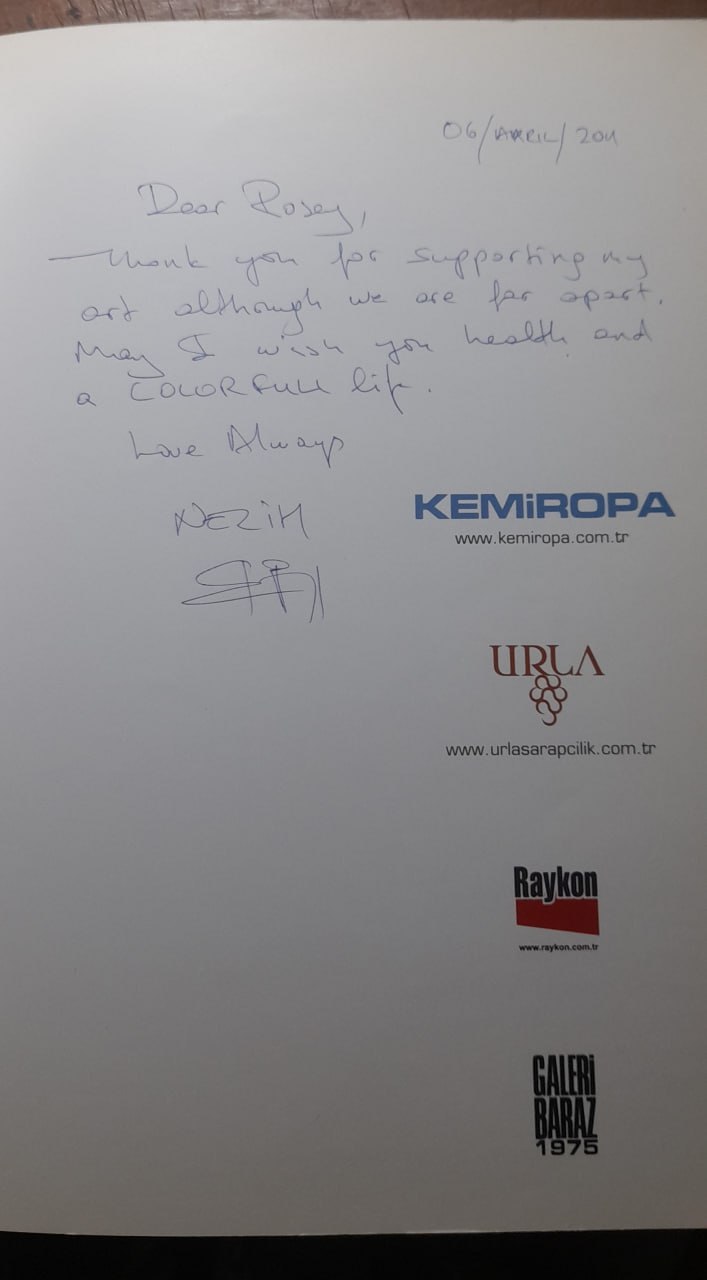 06/APRIL/2011
Dear Rosey,
Thank you for supporting my
art although we are far apart.
May I wish you health and
a COLORFULL life.
Love Always
NEZiH
KEMiROPA
www.kemiropa.com.tr
URLA
www.urlasarapcilik.com.tr
Raykon
www.raykon.com.tr
GALERi
BARAZ
1975